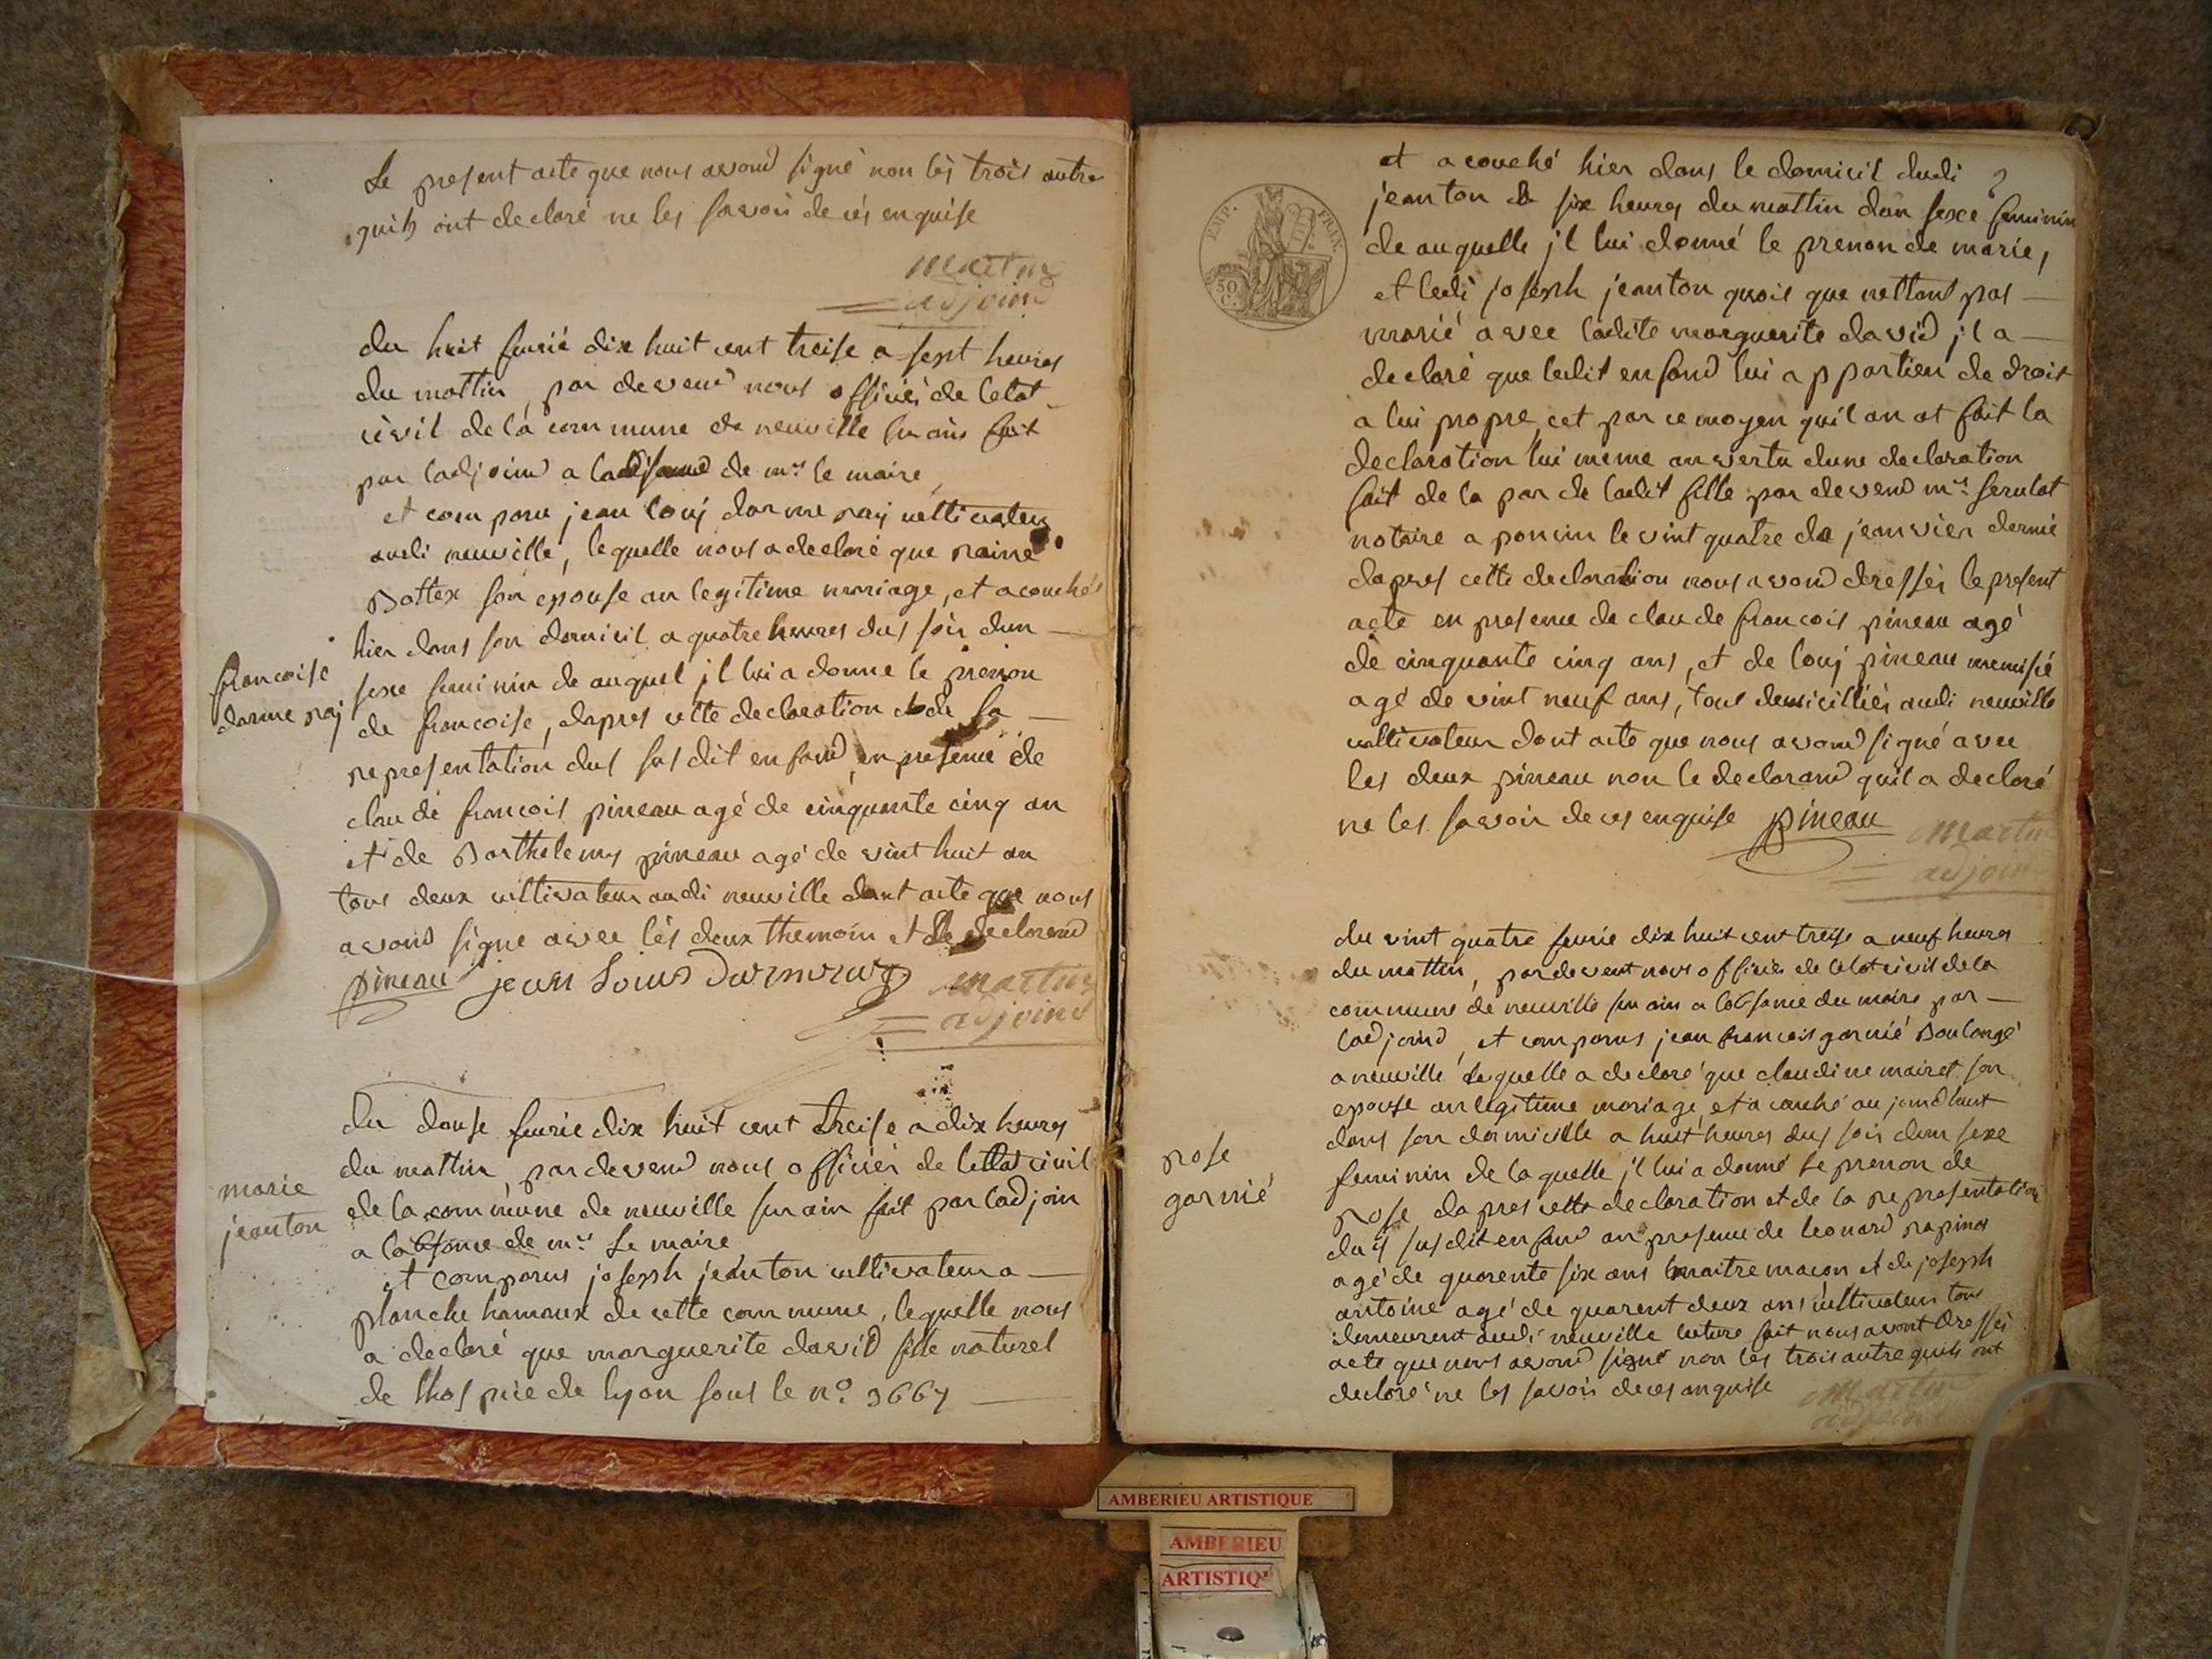 Le present acte que nous avond signé non lés trois autre
quils ont declaré ne les savoir de cés enquise
Martin
adjoind
du huit feurié dix huit cent treise a sept heures
du mattin, par devend nous officiér de letat
civil de la commune de neuville sur ain fait
par ladjoind a de mr le maire,
et comparu jean louj darmeraij cultivateur
audi neuville, lequelle nous a declaré que raine
Bottex son epouse an legitime mariage, et acouchés
hier dans son domicil a quatre heures dus soir dun
francoise
darmeraj
sexe feminin de auquel jl lui a donne le prenon
de francoise, dapres cette declaration de la
representation dus susdit enfand, en presence de
claude francois pineau agé de cinquante cinq an
et de Barthelemy pineau agé de vint huit an
tous deux cultivateur audi neuville dont acte que nous
avond signe avec lés deux themoin et le declarend
pineau jean Louis Darmeray martin
adjoind
Du douse feurie dix huit cent treise a dix heures
du mattin, pardevend nous officiér de lettat civil
marie
jeanton
de la commune de neuville sur ain fait par ladjoin
a labsence de mr Le maire
et comparus joseph jeanton cultivateur a
planche hamaux de cette commune, lequelle nous
a declaré que marguerite david fille naturel
de lhospice de lyon sous le no. 3667
et a couché hier dans le domicil dudi
jeanton a six heures du mattin dun sexe feminin
de auquelle jl lui donné le prenon de marie,
et ledi joseph jeanton quois que nettant pas
marié avec ladite marguerite david, jl a
declaré que ledit enfand lui appartien de droit
a lui propre, cet par ce moyen quil an at fait la
declaration lui meme an vertu dune declaration
fait de la par de ladit fille par devend mr. Serulat
notaire a poncin le vint quatre de jeanvier dernié
dapres cette declaration nous avond dressér le present
acte en presence de claude francois pineau agé
de cinquante cinq ans, et de louj pineau menusié
agé de vint neuf ans, tous domicilliér audi neuville
cultivateur dont acte que nous avond signé avec
les deux pineau non le declarand quil a declaré
ne les savoir de ces enquise pineau
Martin
adjoind
EMP. FRAN.
50
C.
du vint quatre feurie dix huit cent treise a neuf heures
du mattin, pardevent nous officiér de letat civil de la
commune de neuville sur ain a labsance du maire par
ladjoind, et comparus jean francois garnié Boulangé
a neuville Lequelle a declaré que claudine mairet son
epouse an legitime mariage, et a couché aujourdhuit
dans son domicille a huit heures dus soir dun sexe
rose
garnié
feminin de laquelle jl lui a donné Le prenon de
rose, dapres cette declaration et de la representation
dus susdit enfand an presence de leonard rapinat
agé de quarente six ans maitre macon et de joseph
antoine agé de quarent deux ans cultivateur tous
demeurent audi neuville lecture fait nous avont dressér
acte que nous avond signé non les trois autre quils ont
declaré ne les savoir de ces anquise
Martin
adjoind
AMBERIEU ARTISTIQUE
AMBERIEU
ARTISTIQ